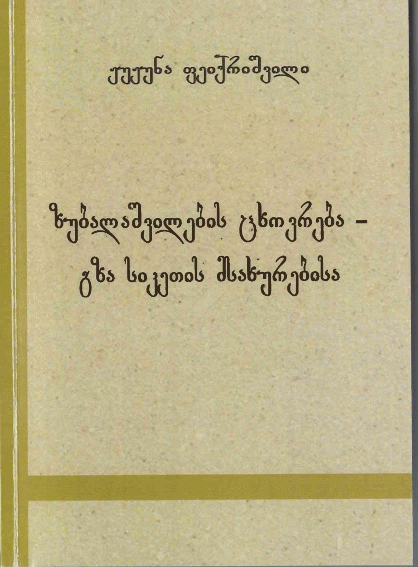 ჟუჟუნა ფეიქრიშვილი
ზუბალაშვილების ცხოვრება –
გზა სიკეთის მსახურებისა